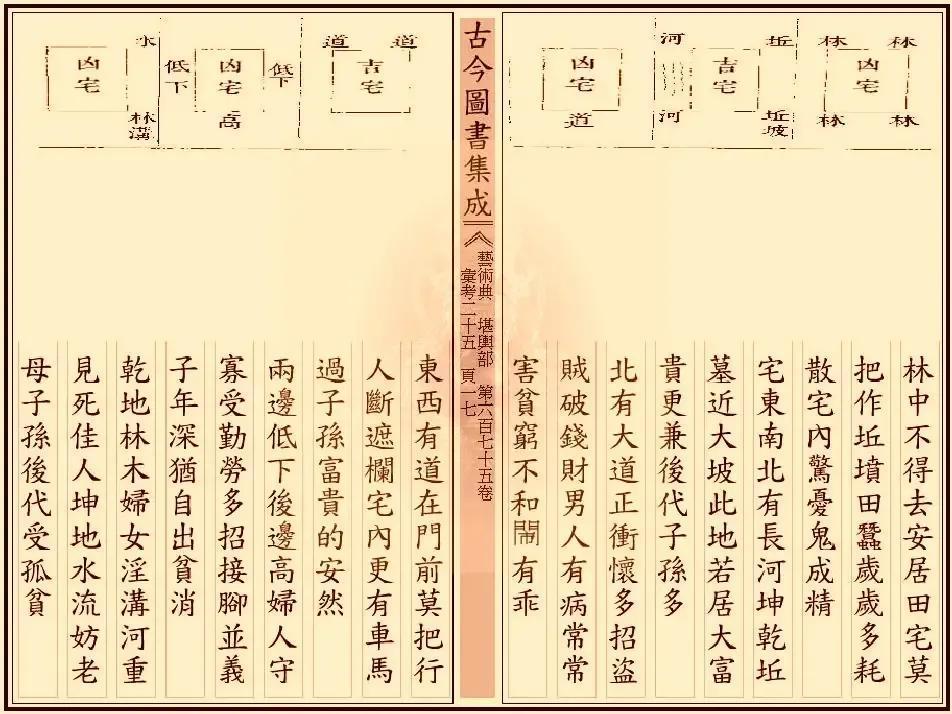 林
林
凶宅
林
林
坵
河
吉宅
坵坡
河
凶宅
道
林中不得去安居田宅莫
把作坵墳田蠶歲歲多耗
散宅內驚憂鬼成精
宅東南北有長河坤乾坵
墓近大坡此地若居大富
貴更兼後代子孫多
北有大道正衝懷多招盜
賊破錢財男人有病常常
害貧窮不和閙有乖
古今圖書集成
藝術典 堪輿部 第六百七十五卷
彙考二十五 頁一七
道
道
吉宅
低下
凶宅
低下
高
水
凶宅
林溝
東西有道在門前莫把行
人斷遮欄宅內更有車馬
過子孫富貴的安然
兩邊低下後邊高婦人守
寡受勤勞多招接腳並義
子年深猶自出貧消
乾地林木婦女淫溝河重
見死佳人坤地水流妨老
母子孫後代受孤貧